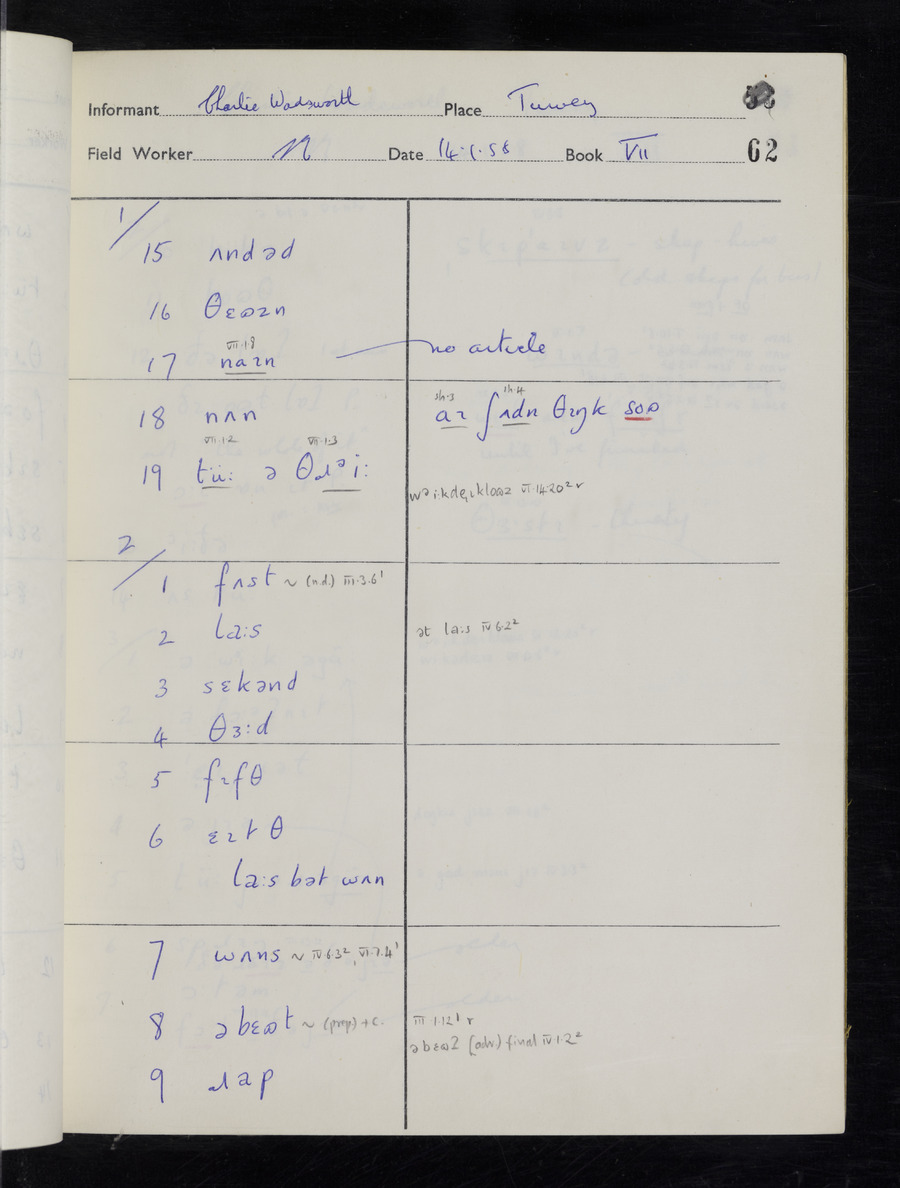 Informant Charlie Wadsworth Place Turvey
Field Worker N Date 14.1.58 Book VII 62
1/
15 ʌndəd
16 θɛɷzn
VII.1.8
17 naɪn no article
18 nʌn
sh.3 sh.4
aɪ ʃʌdn θɪŋk soɷ
VII.1.2 VII.1.3
19 tüː ə θɹəiː
VI.14.20² r
2/
1 fʌst ~ (n.d.) III.3.6¹
2 laːs ət laːs IV 6.2²
3 sɛkənd
4 θɜːd
5 fɪfθ
6 ɛɪtθ
laːs bət wʌn
7 wʌns ~ IV.6.3², VI.7.4¹
8 əbɛɷt ~ (prep) + c. III.1.12¹ r
əbɛɷʔ (adv.) final IV.1.2²
9 ɹap